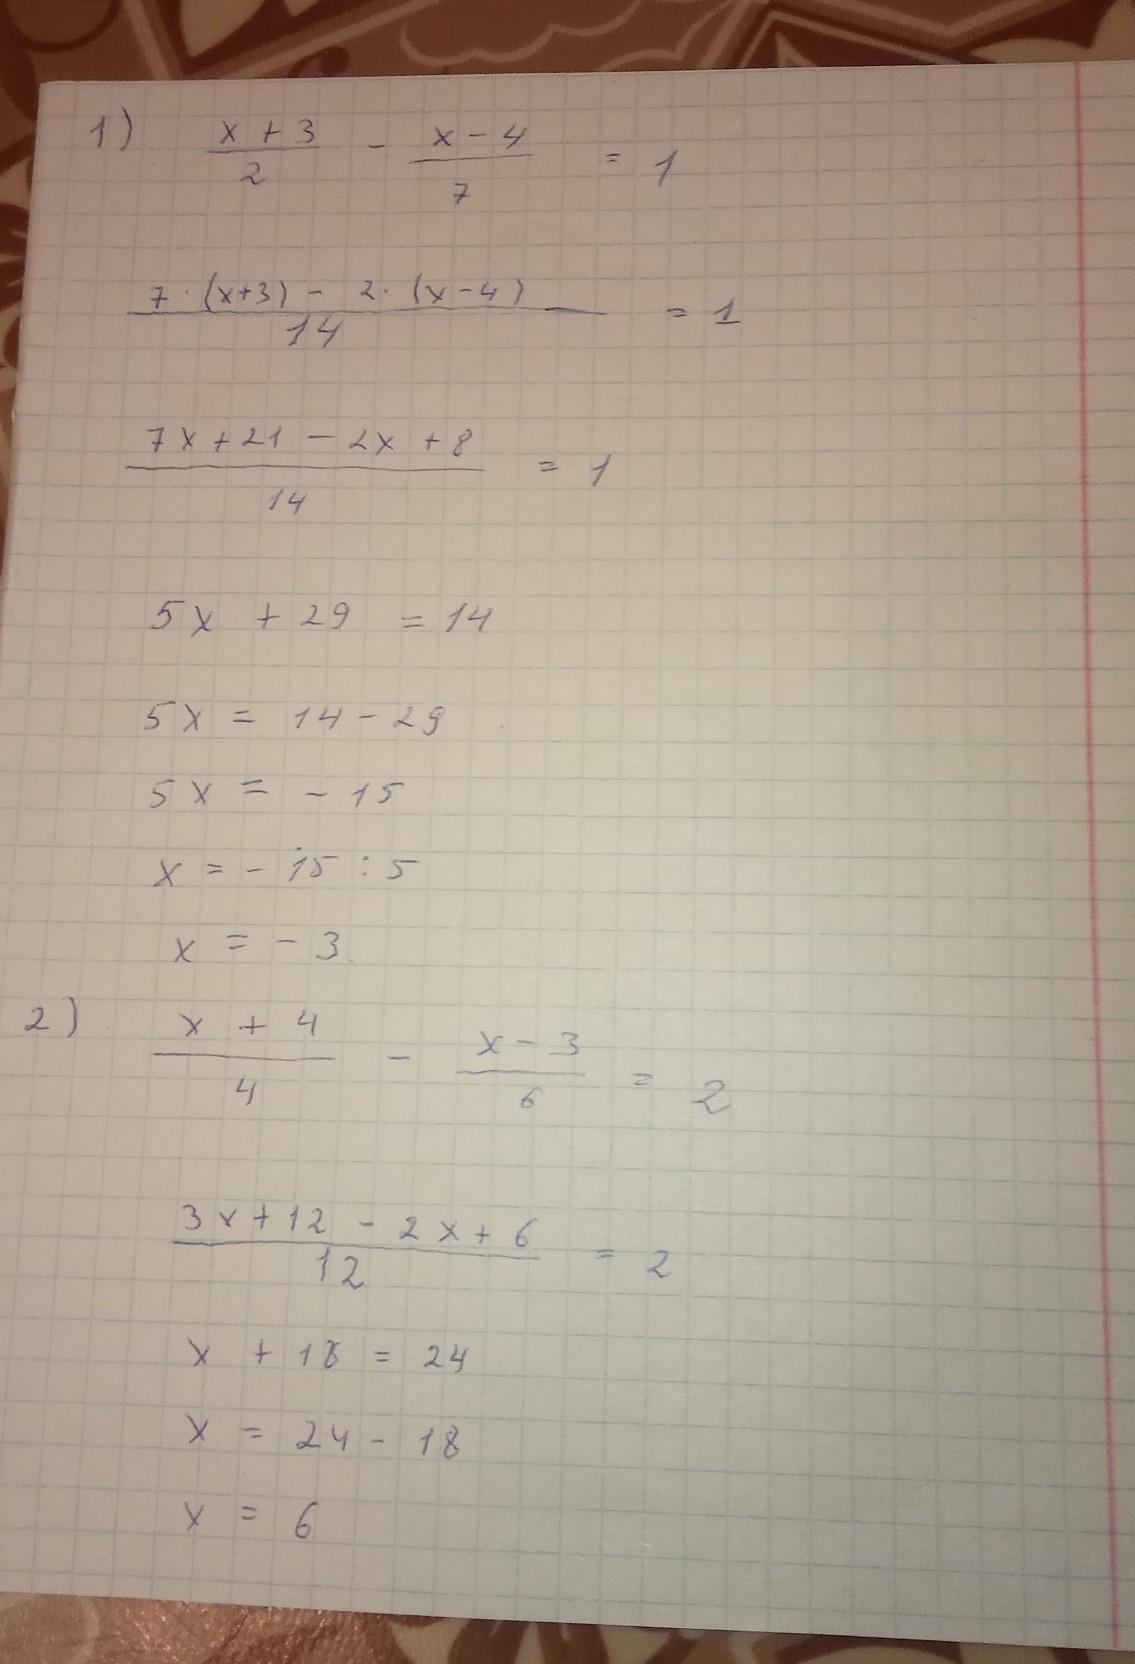 1) (x + 3)/2 - (x - 4)/7 = 1
(7 · (x+3) - 2 · (x-4))/14 = 1
(7x + 21 - 2x + 8)/14 = 1
5x + 29 = 14
5x = 14 - 29
5x = - 15
x = - 15 : 5
x = - 3
2) (x + 4)/4 - (x - 3)/6 = 2
(3x + 12 - 2x + 6)/12 = 2
x + 18 = 24
x = 24 - 18
x = 6